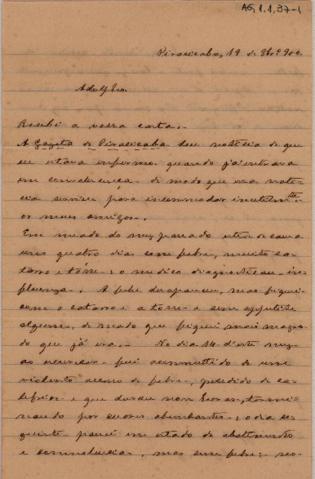 AG, 1.1, 37-1
Piracicaba, 19 de 9brº 900
Adolpho
Recebi a vossa carta.
A Gazeta de Piracicaba deu noticia de que
eu estava enfermo quando já entrava
em convalescença de modo que essa noti-
cia serviu para incommodar inutilmte
os meus amigos.
Em meado do mez passado estive de cama
uns quatro dias com febre, muito ca-
tarro e tosse: o medico diagnosticou in-
fluenza. A febre desappareceu, mas fiquei
com o catarro e a tosse e sem appetite
algum, de modo que fiquei mais magro
do que já era. No dia 14 d'este mez
fui acommettido de um
violento accesso de febre, precedido de ca-
lefrios e que durou nove horas, termi-
nando por suores abundantes; o dia se-
guinte passei em estado de abatimento
e somnolencia, mas sem febre; no